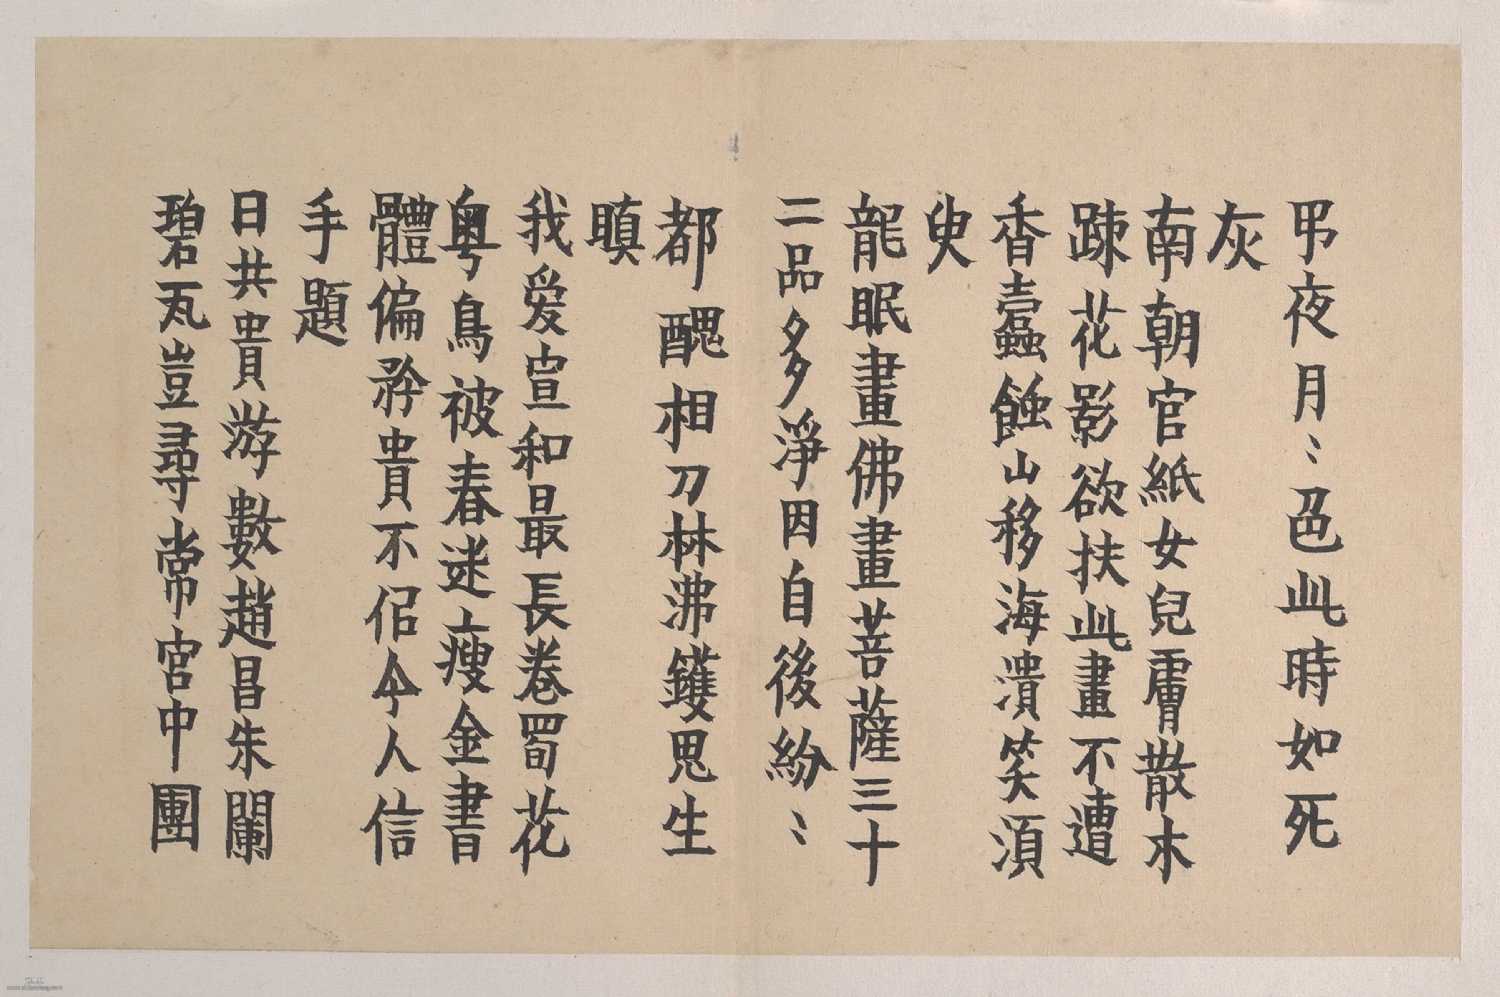 弔夜月〻色此時如死
灰
南朝官紙女兒膚散木
疎花影欲扶此畫不遭
香蠹蝕山移海潰笑須
臾
龍眠畫佛畫菩薩三十
二品多淨因自後紛〻
都醜相刀林沸鑊思生
瞋
我愛宣和最長卷蜀花
粵鳥被春迷瘦金書
體偏矜貴不佀今人信
手題
日共貴游數趙昌朱闌
碧瓦豈尋常宮中團